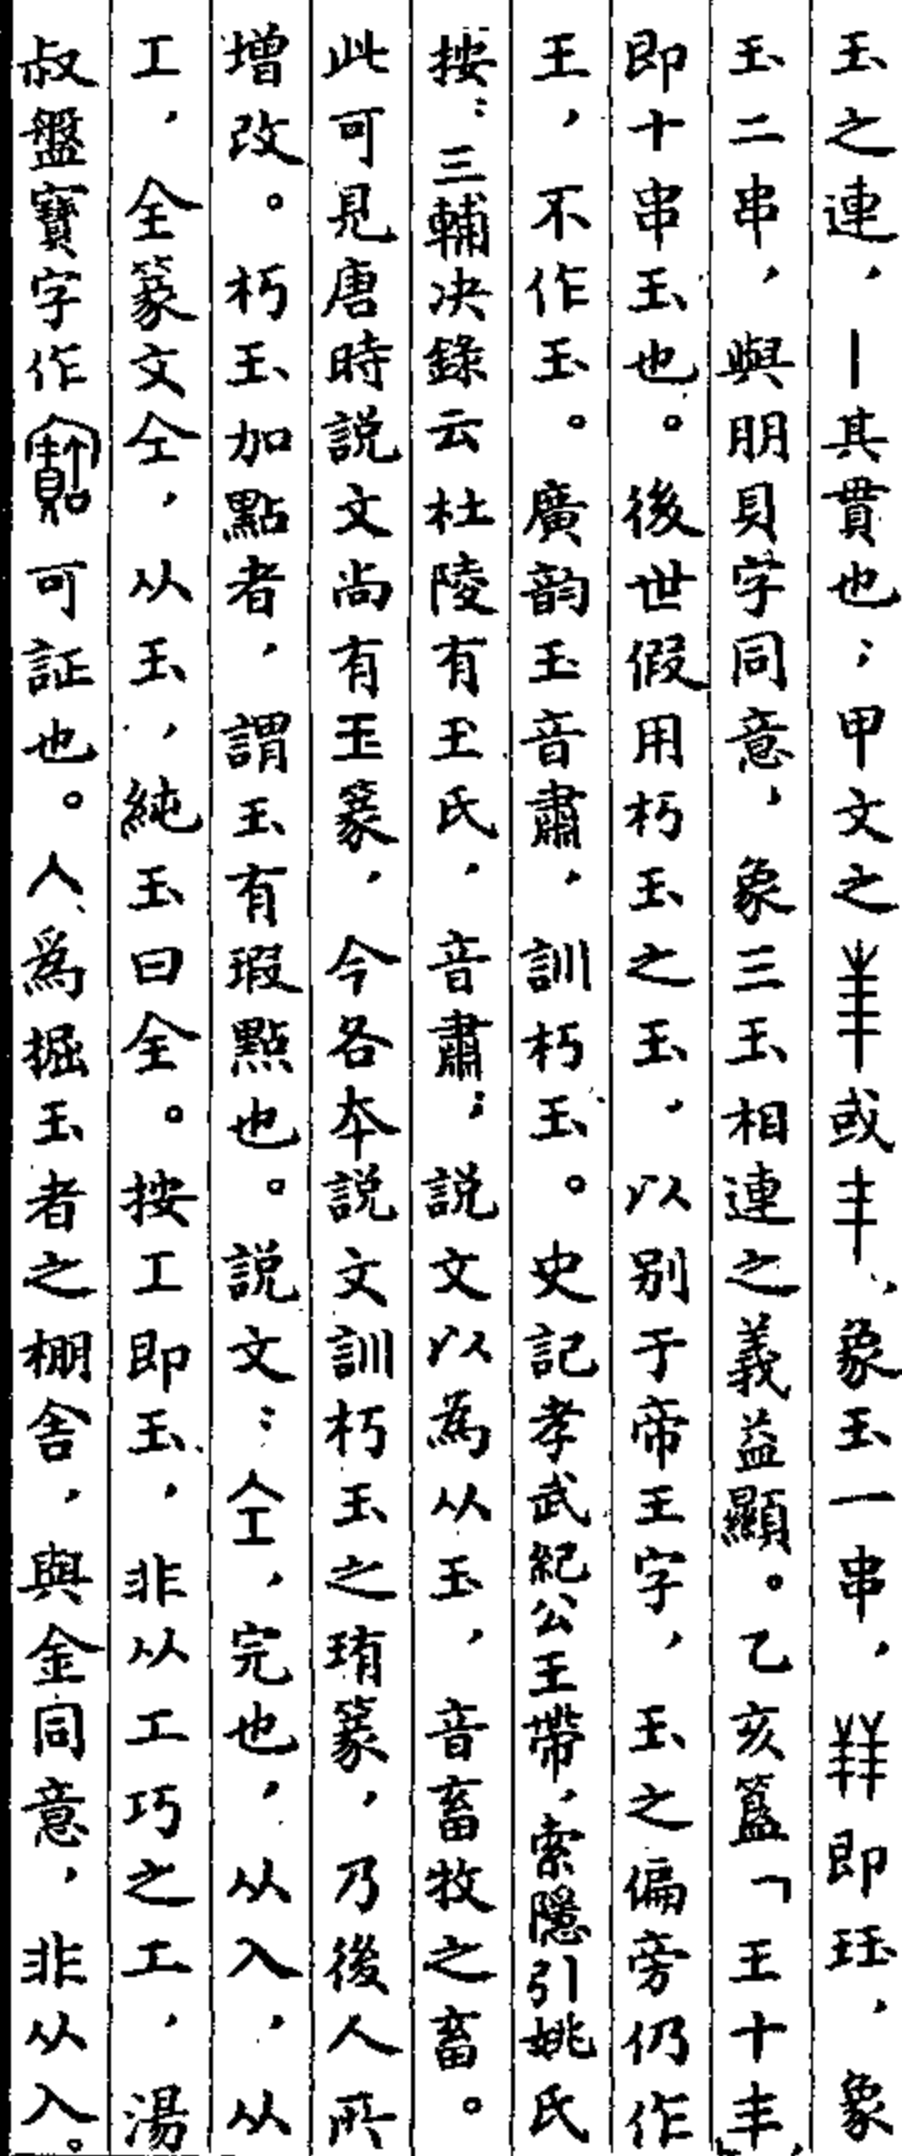 玉之連，丨其貫也；甲文之或丰，象玉一串，即珏，象
玉二串，與朋貝字同意，象三玉相連之義益顯。乙亥簋「王十丰」
即十串玉也。後世假用朽玉之玉，以别于帝王字，玉之偏旁仍作
王，不作玉。廣韵玉音肅，訓朽玉。史記孝武紀公王帶，索隱引姚氏
按：三輔决錄云杜陵有玉氏，音肅；説文以為从玉，音畜牧之畜。
此可見唐時説文尚有玉篆，今各本説文訓朽玉之珛篆，乃後人所
增改。朽玉加點者，謂玉有瑕點也。説文：仝，完也，从入，从
工，全篆文仝，从玉，純玉曰全。按工即玉，非从工巧之工，湯
叔盤寶字作可証也。人為掘玉者之棚舍，與金同意，非从入。